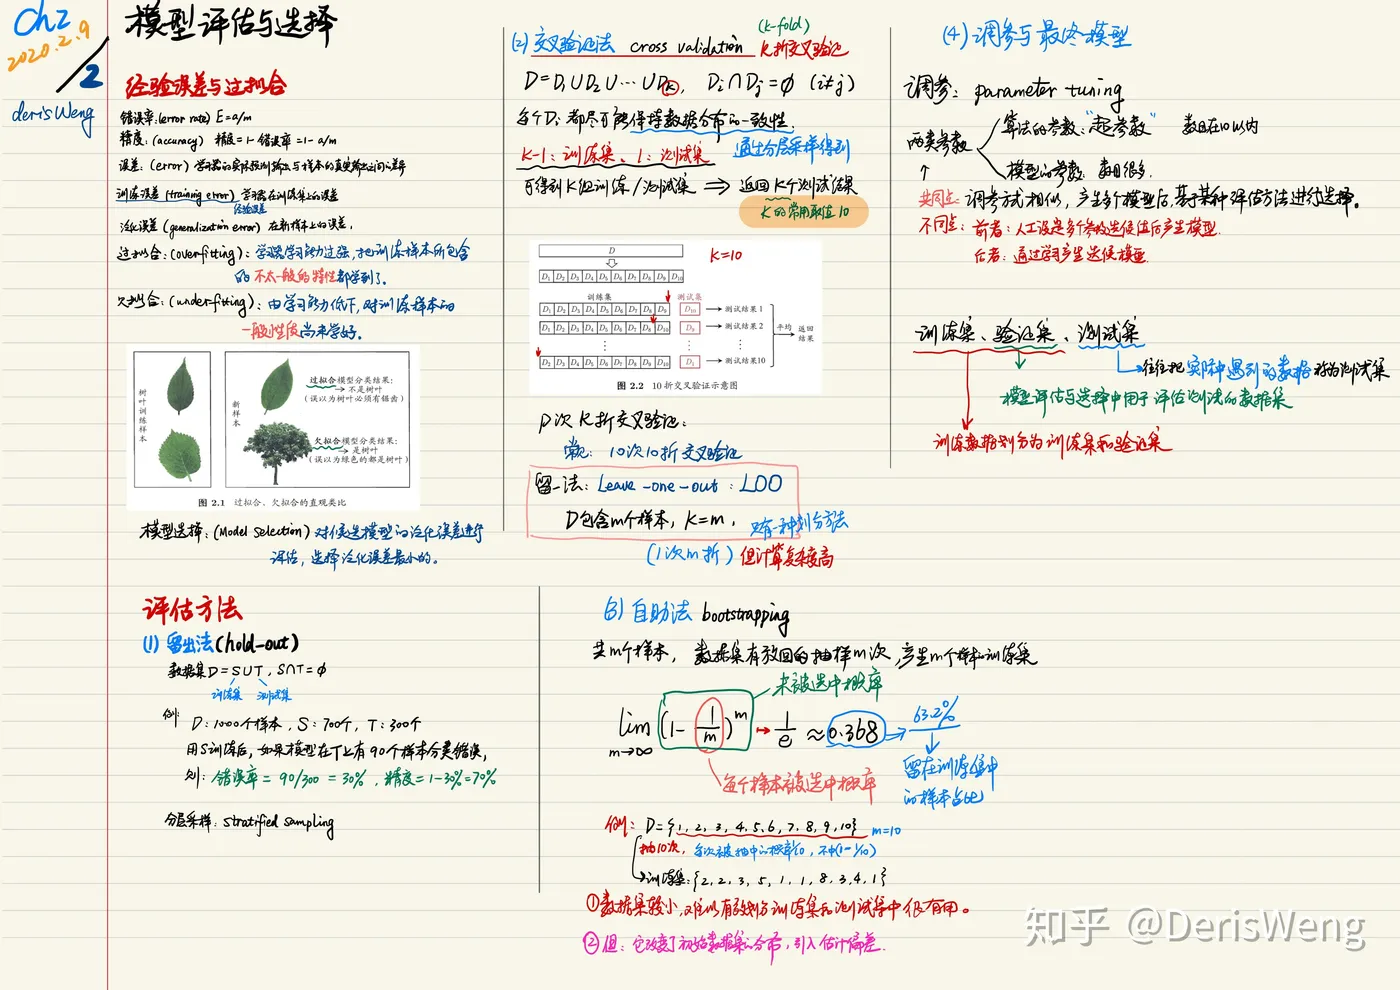 Ch2
2020.2.9
2
derisWeng
模型评估与选择
经验误差与过拟合
错误率:(error rate) E=a/m
精度:(accuracy) 精度=1-错误率=1-a/m
误差:(error) 学习器的实际预测输出与样本的真实输出之间的差异
训练误差(training error) 学习器在训练集上的误差
经验误差
泛化误差(generalization error) 在新样本上的误差,
过拟合:(overfitting):学习器学习能力过强,把训练样本所包含
的不太一般的特性都学到了.
欠拟合:(underfitting):由学习能力低下,对训练样本的
一般性质尚未学好.
树叶训练样本
新样本
过拟合模型分类结果:
→不是树叶
(误以为树叶必须有锯齿)
欠拟合模型分类结果:
→是树叶
(误以为绿色的都是树叶)
图 2.1 过拟合、欠拟合的直观类比
模型选择:(Model Selection) 对候选模型的泛化误差进行
评估,选择泛化误差最小的.
评估方法
(1) 留出法(hold-out)
数据集D=S∪T, S∩T=∅
训练集 测试集
例:
D:1000个样本, S:700个, T:300个
用S训练后,如果模型在T上有90个样本分类错误,
则:错误率=90/300=30%,精度=1-30%=70%
分层采样:stratified sampling
(2) 交叉验证法 cross validation (k-fold) K折交叉验证
D=D₁∪D₂∪…∪Dₖ, Di∩Dj=∅ (i≠j)
每个Di都尽可能保持数据分布的一致性.
通过分层采样得到
K-1:训练集、1:测试集
可得到K组训练/测试集 ⇒ 返回K个测试结果
K的常用取值10
K=10
D
D₁ D₂ D₃ D₄ D₅ D₆ D₇ D₈ D₉ D₁₀
训练集 测试集
D₁ D₂ D₃ D₄ D₅ D₆ D₇ D₈ D₉ D₁₀ →测试结果1
D₁ D₂ D₃ D₄ D₅ D₆ D₇ D₈ D₁₀ D₉ →测试结果2
平均 返回结果
D₂ D₃ D₄ D₅ D₆ D₇ D₈ D₉ D₁₀ D₁ →测试结果10
图 2.2 10 折交叉验证示意图
p次K折交叉验证:
常见:10次10折交叉验证
留一法:Leave-one-out:LOO
D包含m个样本,K=m,只有一种划分方法
(1次m折) 但计算复杂度高
(3) 自助法 bootstrapping
共m个样本,数据集有放回的抽样m次,产生m个样本训练集
未被选中概率
lim m→∞ (1-1/m)^m → 1/e ≈0.368 → 63.2%
每个样本被选中概率
留在训练集中
的样本占比
例:D={1,2,3,4,5,6,7,8,9,10} m=10
抽10次,每次被抽中的概率1/10,不中(1-1/10)
训练集:{2,2,3,5,1,1,8,3,4,1}
①数据集较小,难以有效划分训练集和测试集中很有用。
②但:它改变了初始数据集的分布,引入估计偏差.
(4) 调参与最终模型
调参:parameter tuning
两类参数
算法的参数:"超参数" 数目在10以内
模型的参数:数目很多.
共同点:调参方式相似,产生多个模型后,基于某种评估方法进行选择。
不同点:前者:人工设定多个参数选候值后产生模型.
后者:通过学习产生选候模型.
训练集、验证集、测试集
往往把实际中遇到的数据称为测试集
模型评估与选择中用于评估测试的数据集
训练数据划分为训练集和验证集
知乎 @DerisWeng